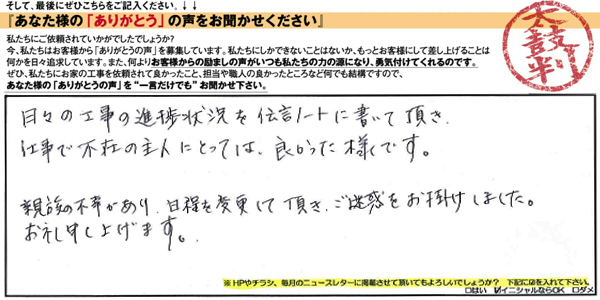 そして、最後にぜひこちらをご記入ください。↓↓
『あなた様の「ありがとう」の声をお聞かせください』
私たちにご依頼されていかがでしたでしょうか?
今、私たちはお客様から「ありがとうの声」を募集しています。私たちにしかできないことはないか、もっとお客様にして差し上げることは
何かを日々追求しています。また、何よりお客様からの励ましの声がいつも私たちの力の源になり、勇気付けてくれるのです。
ぜひ、私たちにお家の工事を依頼されて良かったこと、担当や職人の良かったところなど何でも結構ですので、
あなた様の「ありがとうの声」を“一言だけでも”お聞かせ下さい。
太鼓判
日々の工事の進捗状況を伝言ノートに書いて頂き、
仕事で不在の主人にとっては、良かった様です。
親族の不幸があり、日程を変更して頂き、ご迷惑をお掛けしました。
お礼申し上げます。
※HPやチラシ、毎月のニュースレターに掲載させて頂いてもよろしいでしょうか? 下記に☑を入れて下さい。
□はい ☑イニシャルならOK □ダメ